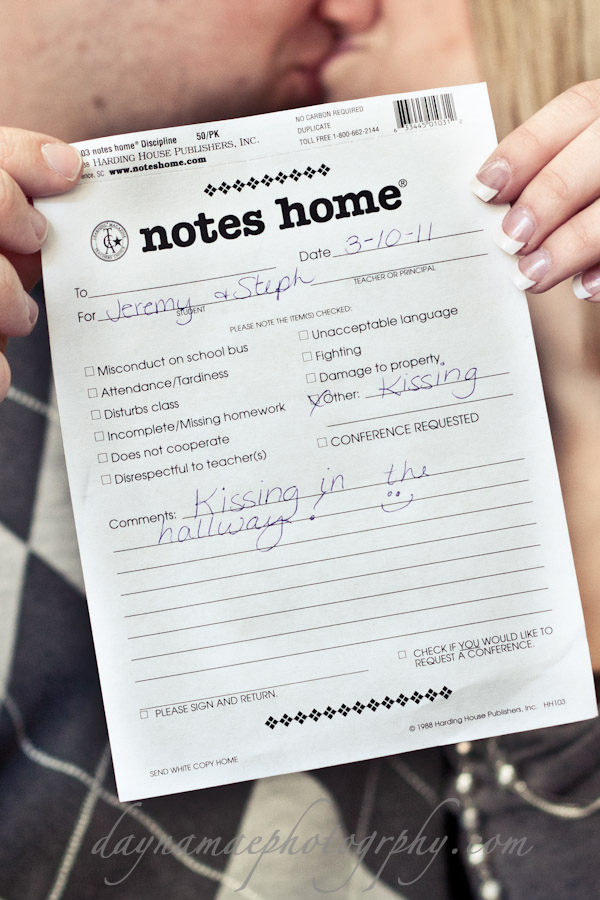 03 notes home® Discipline 50/PK
HARDING HOUSE PUBLISHERS, INC.
ence, SC www.noteshome.com
NO CARBON REQUIRED
DUPLICATE
TOLL FREE 1-800-662-2144
6 33445 01031 2
notes home®
Date 3-10-11
To
TEACHER OR PRINCIPAL
For Jeremy & Steph
STUDENT
PLEASE NOTE THE ITEM(S) CHECKED:
Misconduct on school bus
Attendance/Tardiness
Disturbs class
Incomplete/Missing homework
Does not cooperate
Disrespectful to teacher(s)
Unacceptable language
Fighting
Damage to property
Other: Kissing
CONFERENCE REQUESTED
Comments: Kissing in the
hallway!
CHECK IF YOU WOULD LIKE TO
REQUEST A CONFERENCE.
PLEASE SIGN AND RETURN.
© 1988 Harding House Publishers, Inc. HH103
SEND WHITE COPY HOME
daynamaephotography.com